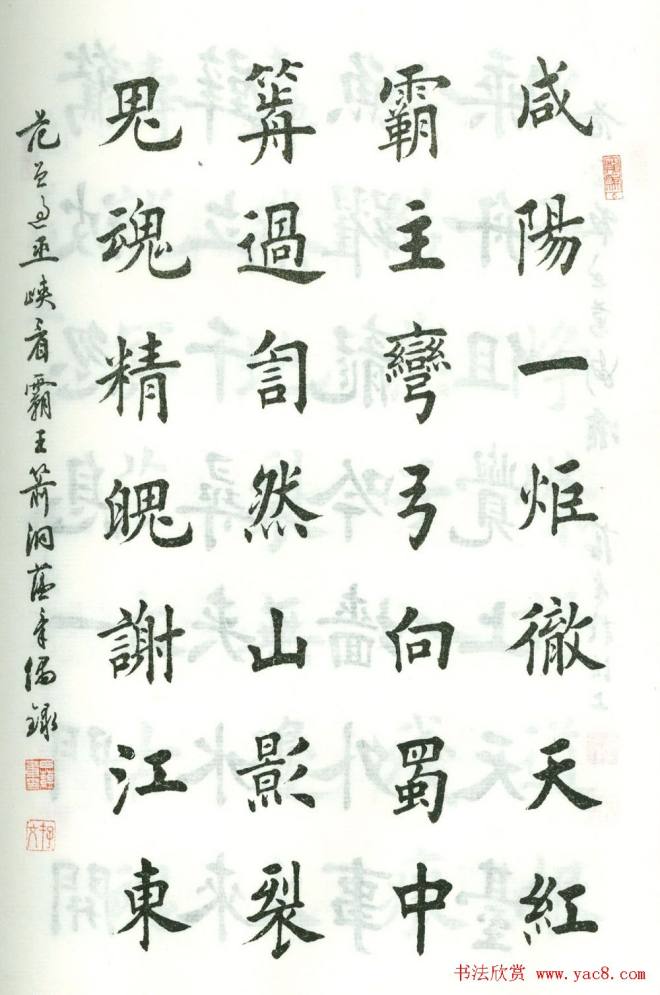 咸陽一炬徹天紅
霸主彎弓向蜀中
箭過訇然山影裂
鬼魂精魄謝江東
過巫峽看霸王箭洞 偶錄
书法欣赏 www.yac8.com